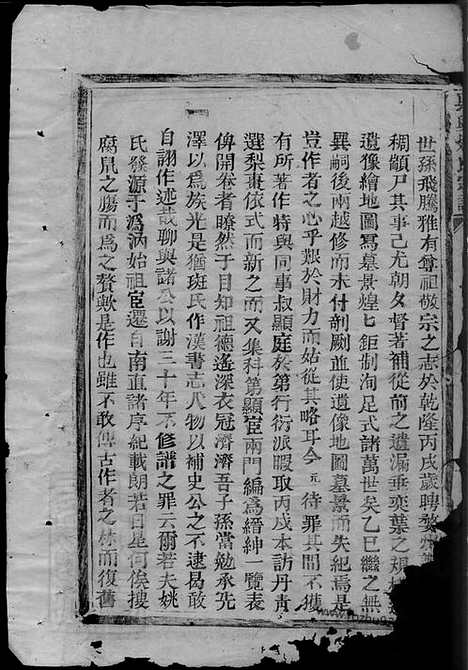 世孫飛騰雅有尊祖敬宗之志於乾隆丙戌歲聘婺
稠顓尸其事己尤朝夕督著補從前之遺漏垂奕葉之規
遺像繪地圖寫墓景煌匕鉅制洵足式諸萬世矣乙巳繼之無
異嗣後兩越修而未付剞劂並使遺像地圖墓景而失紀焉是
豈作者之心乎艱於財力而姑從其略耳今元待罪其間不獲
有所著作特與同事叔顯庭於第行衍派暇取丙戌本訪丹青
選梨棗依式而新之而又集科第顯宦兩門編為縉紳一覽表
俾開卷者瞭然于目知祖德遙深衣冠濟濟吾子孫當勉承先
澤以為族光是猶班氏作漢書志人物以補史公之不逮曷敢
自詡作述哉聊與諸公以謝三十年不修譜之罪云爾若夫姚
氏發源于溈汭始祖宦遷自南直諸序紀載朗若日星何俟摟
腐鼠之腸而為之贅歟是作也雖不敢傳古作者之林而復舊